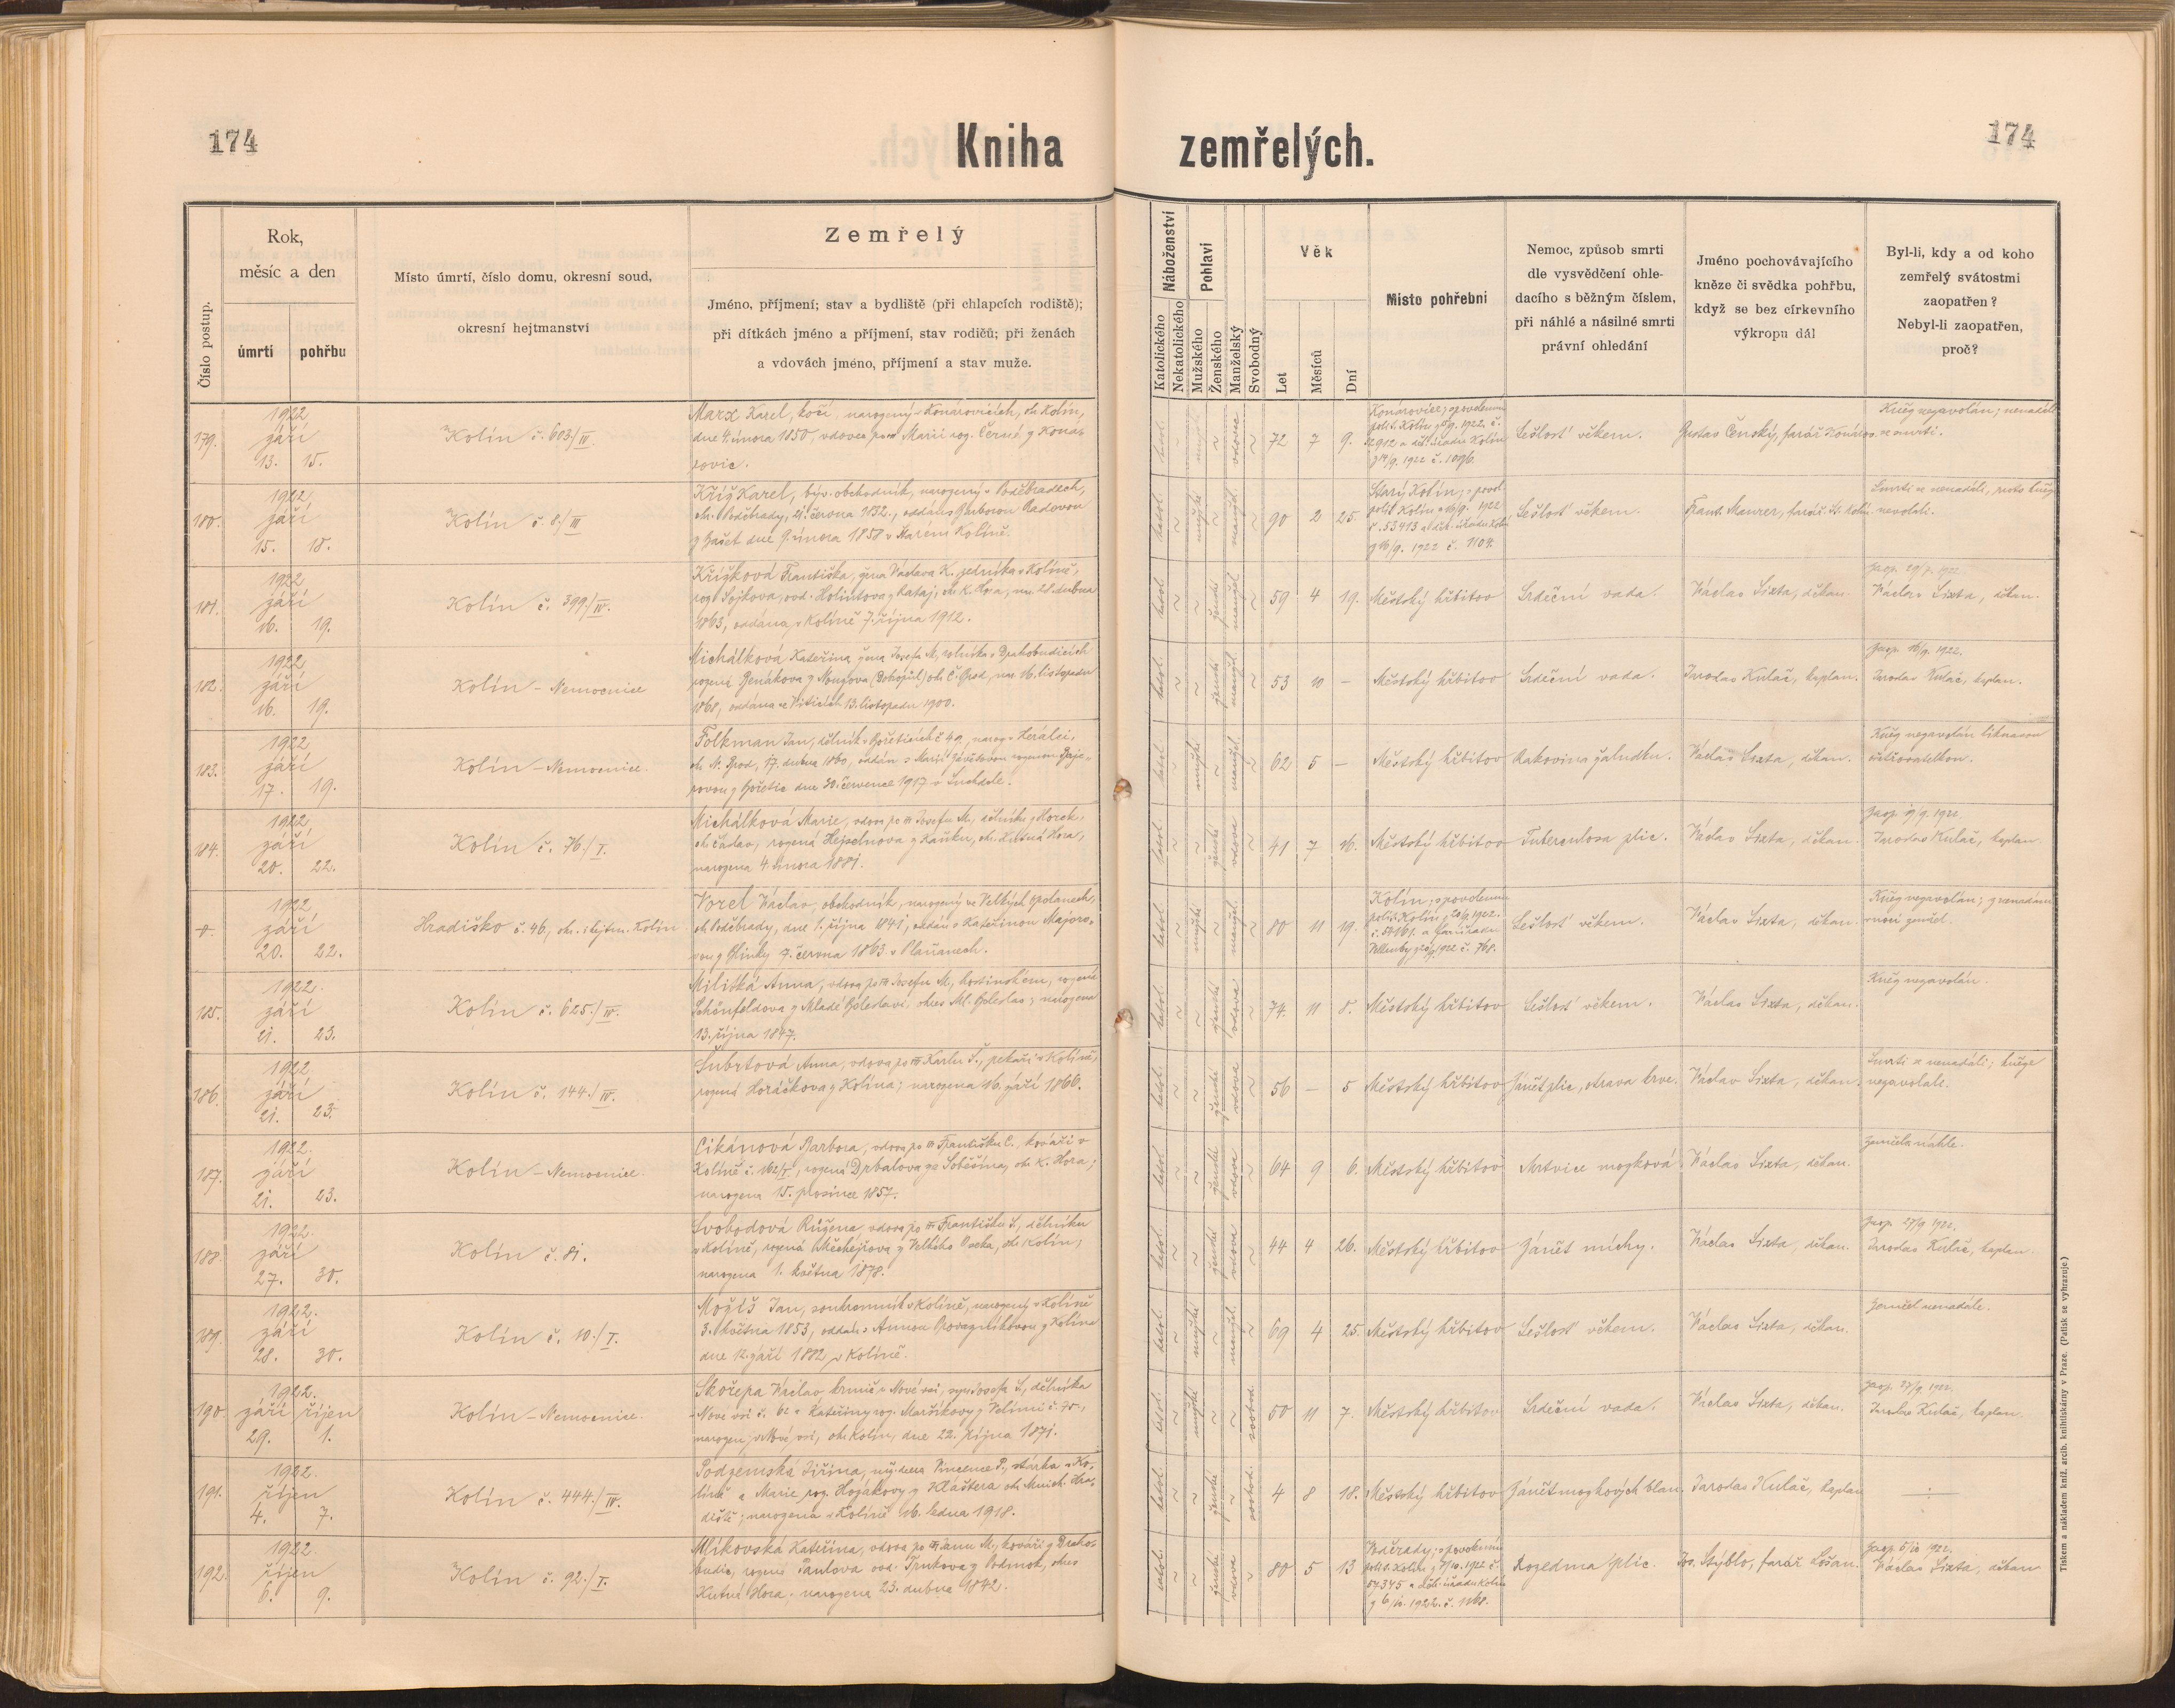 174
Kniha zemřelých.
174
Číslo postup.
Rok,
měsíc a den
úmrtí
pohřbu
Místo úmrtí, číslo domu, okresní soud,
okresní hejtmanství
Zemřelý
Jméno, příjmení; stav a bydliště (při chlapcích rodiště);
při dítkách jméno a příjmení, stav rodičů; při ženách
a vdovách jméno, příjmení a stav muže.
Náboženství
Katolického
Nekatolického
Pohlaví
Mužského
Ženského
Manželský
Svobodný
Věk
Let
Měsíců
Dní
Místo pohřební
Nemoc, způsob smrti
dle vysvědčení ohle-
dacího s běžným číslem,
při náhlé a násilné smrti
právní ohledání
Jméno pochovávajícího
kněze či svědka pohřbu,
když se bez církevního
výkropu dál
Byl-li, kdy a od koho
zemřelý svátostmi
zaopatřen?
Nebyl-li zaopatřen,
proč?
179. 1922 září 13. 15.
Kolín č. 603./III.
Marx Karel, kočí, narozený v Konárovicích, ok. Kolín,
dne 4. února 1850, vdovec po Marii roz. Černé z Koná-
rovic.
katol. mužské vdovec 72 7 9.
Sešlosť věkem.
Gustav Čenský, farář
Kněz nezavolán;
180. 1922 září 15. 18.
Kolín č. 8./III
Kříž Karel, býv. obchodník, narozený v Poděbradech,
ok. Poděbrady, 21. června 1832., oddán s Barborou Radovou
dne 9. února 1858 v Starém Kolíně.
katol. mužské manžel. 90 2 25.
Starý Kolín;
č. 1104.
Sešlosť věkem.
Frant. Maurer, farář St. Kolín
Smrti se nenadáli, proto kněze
nevolali.
181. 1922 září 16. 19.
Kolín č. 399./IV.
Křížková Františka, žena Václava K. v Kolíně,
1863, oddána v Kolíně 7. října 1912.
katol. ženské manžel. 59 4 19.
Městský hřbitov
Srdeční vada.
Václav Sixta, děkan.
Václav Sixta, děkan.
182. 1922 září 16. 19.
Kolín - Nemocnice
Michálková Kateřina, žena Josefa M., rolníka v Drahobudicích
1868, oddána ve Viticích 13. listopadu 1900.
katol. ženské manžel. 53 10 –
Městský hřbitov
Srdeční vada.
Jaroslav Kulač, kaplan.
Zaop. 16/9. 1922.
Jaroslav Kulač, kaplan.
183. 1922 září 17. 19.
Kolín - Nemocnice.
Folkman Jan, dělník v Hořeticích č. 49, naroz. v Herálci,
ok. N. Brod, 17. dubna 1860,
dne 30. července 1917 v Suchdole.
katol. mužské manžel. 62 5 –
Městský hřbitov
Rakovina žaludku.
Václav Sixta, děkan.
Kněz nezavolán
ošetřovatelkou.
184. 1922 září 20. 22.
Kolín č. 76./I.
Michálková Marie, vdova po † Josefu M., dělníku z Horek,
ok. Čáslav, rozená Hejselnova z Kaňku, ok. Kutná Hora,
narozena 4. února 1881.
katol. ženské vdova 41 7 16.
Městský hřbitov
Tuberculosa plic.
Václav Sixta, děkan.
Jaroslav Kulač, kaplan.
1922 září 20. 22.
Hradiško č. 46, ok. i hejtm. Kolín
Vorel Václav, obchodník, narozený ve Velkých Opolanech,
ok. Poděbrady, dne 1. října 1841, oddán s Kateřinou Majoro-
vou z Hlinky 9. června 1863 v Plaňanech.
katol. mužské manžel. 80 11 19.
Kolín; s povolením
Sešlosť věkem.
Václav Sixta, děkan.
Kněz nezavolán;
v noci zemřel.
185. 1922. září 21. 23.
Kolín č. 625./IV.
Militká Anna, vdova po † Josefu M., hostinském, rozená
Schönfeldova z Mladé Boleslavi, okres Ml. Boleslav; narozena
13. října 1847.
katol. ženské vdova 74. 11 8.
Městský hřbitov
Sešlosť věkem.
Václav Sixta, děkan.
Kněz nezavolán.
186. 1922 září 21. 23.
Kolín č. 144./IV.
Šubrtová Anna, vdova po † Karlu Š., pekaři v Kolíně,
rozená Horáčkova z Kolína; narozena 16. září 1866.
katol. ženské vdova 56 – 5
Městský hřbitov
Zánět plic, otrava krve.
Václav Sixta, děkan.
Smrti se nenadáli; kněze
nezavolali.
187. 1922. září 21. 23.
Kolín - Nemocnice.
Cikánová Barbora, vdova po † Františku C., kováři v
Kolíně č. 162/I., rozená Drbalova ze Soběšína, ok. K. Hora;
narozena 15. prosince 1857.
katol. ženské vdova 64 9 6.
Městský hřbitov
Mrtvice mozková
Václav Sixta, děkan.
Zemřela náhle.
188. 1922. září 27. 30.
Kolín č. 81.
Svobodová Růžena, vdova po † Františku S., dělníku
v Kolíně, rozená Měchejřova z Velkého Oseka, ok. Kolín;
narozena 1. května 1878.
katol. ženské vdova 44 4 26.
Městský hřbitov
Zánět míchy.
Václav Sixta, děkan.
Zaop. 27/9 1922.
Jaroslav Kulač, kaplan.
189. 1922. září 28. 30.
Kolín č. 10./I.
Možíš Jan, soukromník v Kolíně, narozený v Kolíně
3. května 1853, oddán s Annou z Kolína
dne 12. září 1882 v Kolíně.
katol. mužské manžel. 69 4 25.
Městský hřbitov
Sešlosť věkem.
Václav Sixta, děkan.
Zemřel nenadále.
190. 1922. září říjen 29. 1.
Kolín - Nemocnice.
Skořepa Václav, krmič v Nové vsi, syn Josefa S., dělníka
v Nové vsi č. 62 a Kateřiny roz. Maršíkovy z Velimi č. 75.,
narozen v Nové vsi, ok. Kolín, dne 22. října 1871.
katol. mužské svobod. 50 11 7.
Městský hřbitov
Srdeční vada.
Václav Sixta, děkan.
Zaop. 27/9. 1922.
Jaroslav Kulač, kaplan.
191. 1922. říjen 4. 7.
Kolín č. 444./IV.
Podzemská Jiřina, mž. dcera Vincence P., stárka v Ko-
líně a Marie roz. Hojákovy z Kláštera ok. Mnich. Hra-
diště; narozena v Kolíně 16. ledna 1918.
katol. ženské svobod. 4 8 18.
Městský hřbitov
Zánět mozkových blan.
Jaroslav Kulač, kaplan
192. 1922. říjen 6. 9.
Kolín č. 92./I.
Mlíkovská Kateřina, vdova po † Janu M., kováři z Draho-
budic, rozená Pavlova ovd. Trnkova z Podmok, okres
Kutná Hora; narozena 23. dubna 1842.
katol. ženské vdova 80 5 13
Rozedma plic.
Jos. Stýblo, farář Lošan.
Zaop. 5/10 1922.
Václav Sixta, děkan
Tiskem a nákladem kníž. arcib. knihtiskárny v Praze. (Patisk se vyhrazuje.)